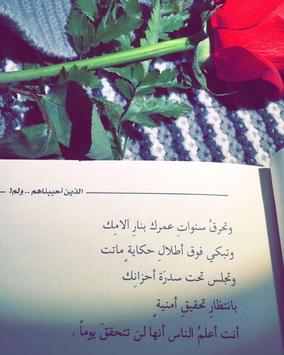 الذين أحببناهم .. ولم!
وتحرقُ سنواتِ عمرك بنارِ آلامِك
وتبكي فوق أطلالِ حكاية ٍماتت
وتجلس تحت سدرَة أحزانِك
بانتظارِ تحقيقِ أمنيةٍ
أنت أعلمُ الناس أنها لن تتحققَ يوماً .